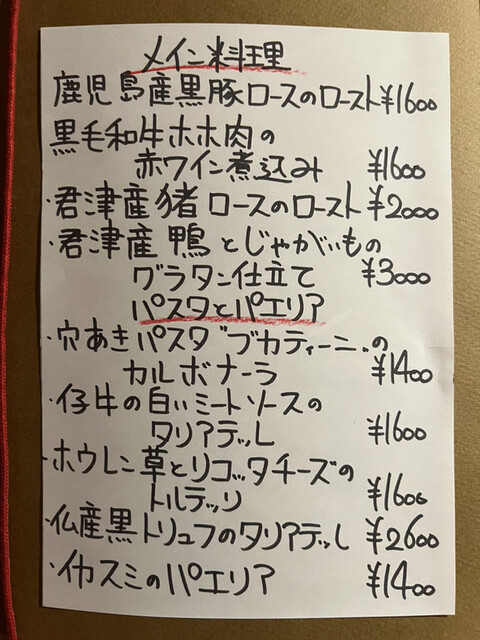 メイン料理
鹿児島産黒豚ロースのロースト ¥1600
黒毛和牛ホホ肉の
赤ワイン煮込み ¥1600
・君津産猪ロースのロースト ¥2000
・君津産鴨とじゃがいもの
グラタン仕立て ¥3000
パスタとパエリア
・穴あきパスタ"ブカティーニ"の
カルボナーラ ¥1400
・仔牛の白いミートソースの
タリアテッレ ¥1600
・ホウレン草とリコッタチーズの
トルテッリ ¥1600
・仏産黒トリュフのタリアテッレ ¥2600
・イカスミのパエリア ¥1400